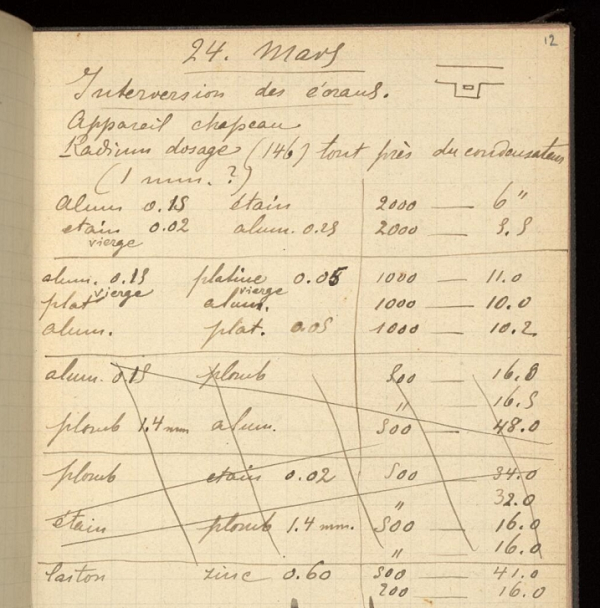 12
24. Mars
Interversion des écrans.
Appareil chapeau
Radium dosage (146) tout près du condensateur
(1 mm. ?)
Alum 0.15 étain 2000 — 6"
etain 0.02 alum. 0.15 2000 — 5.5
vierge
alum. 0.15 platine 0.05 1000 — 11.0
vierge vierge
plat alum. 1000 — 10.0
alum. plat. 0.05 1000 — 10.2
alum. 0.15 plomb 500 — 16.8
" 16.5
plomb 1.4 mm alum. 500 — 48.0
plomb etain 0.02 500 — 34.0
" 32.0
étain plomb 1.4 mm. 500 — 16.0
" — 16.0
laston zinc 0.60 500 — 41.0
200 — 16.0